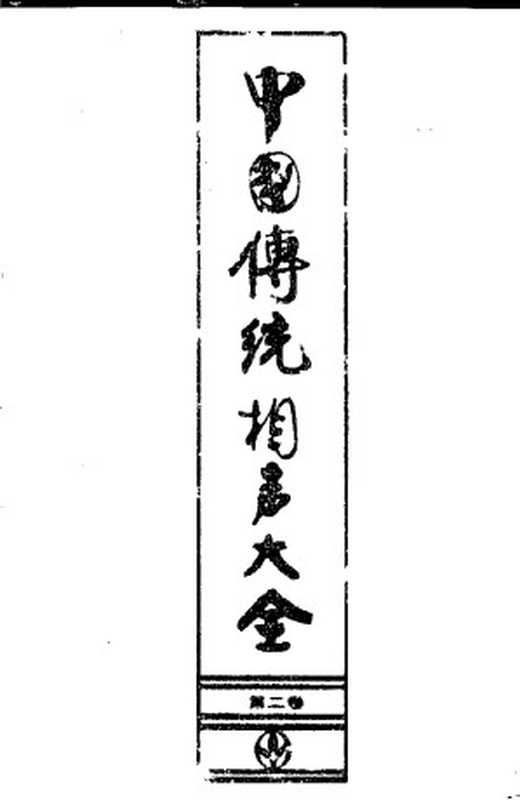 中國傳统相声大全
第二卷